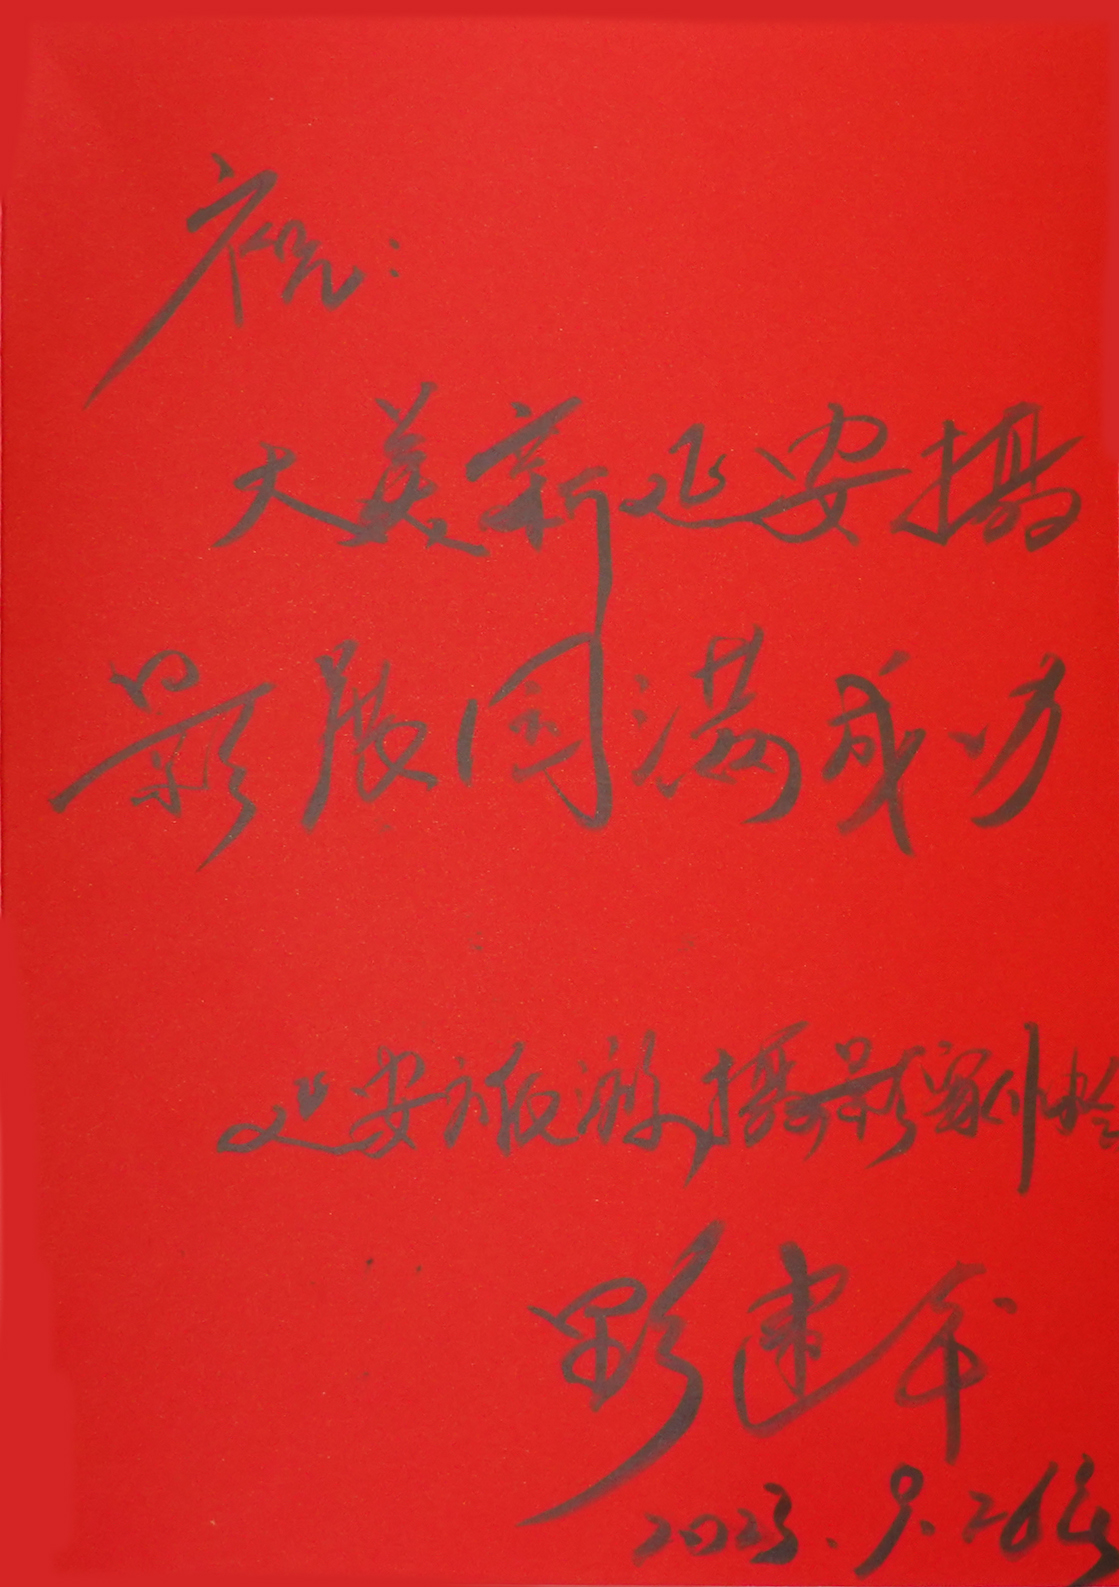 祝:
大美新延安摄
影展圆满成功
延安旅游摄影家协会
建军
2023.9.26